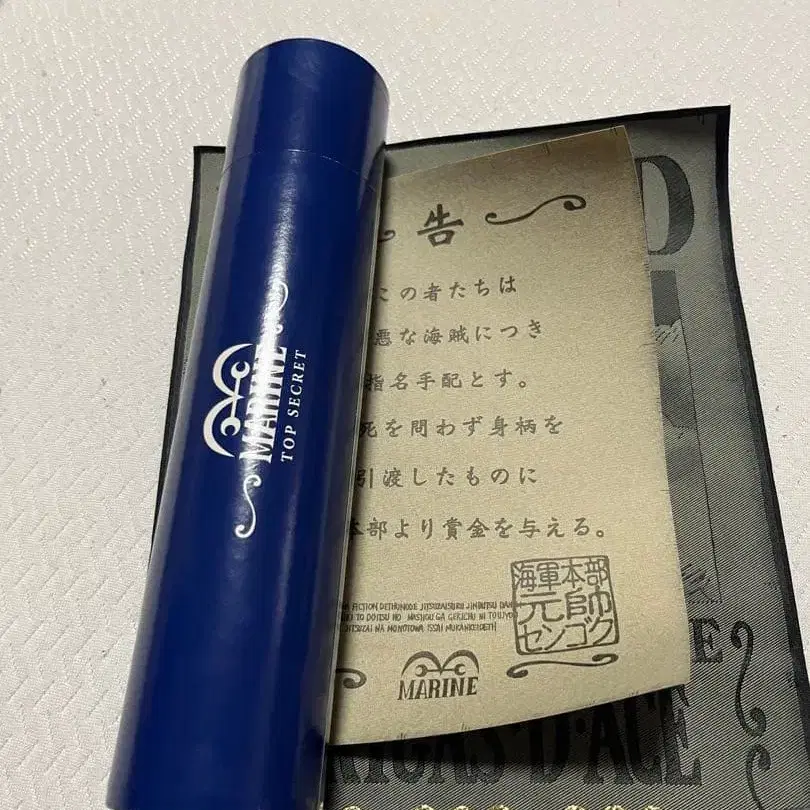 MARINE
TOP SECRET
告
この者たちは
悪な海賊につき
指名手配とす。
死を問わず身柄を
引渡したものに
本部より賞金を与える。
FICTION DETHINODE JITSUZAISURU JINBUTSU DAN
TO DOITSU NO MASHOU GA GEKICHU NI TOUJYO
JITSUZAI NA MONOTOWA ISSAI MUKANKEIDETH
海軍本部
元帥
センゴク
MARINE
D
E
GAS·D·ACE